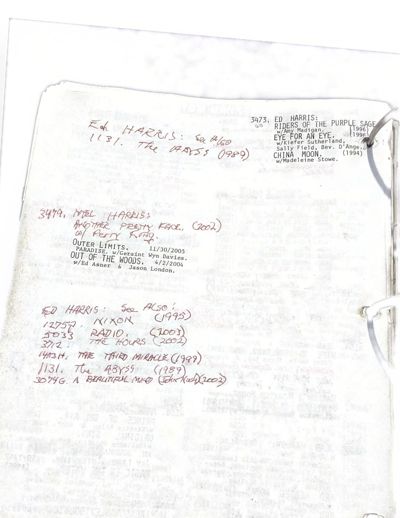 Ed HARRIS: See Also
1131. The ABYSS (1989)
3473. ED HARRIS:
RIDERS OF THE PURPLE SAGE
w/Amy Madigan. (1996)
EYE FOR AN EYE. (1996)
w/Kiefer Sutherland,
Sally Field, Bev. D'Ange
CHINA MOON. (1994)
w/Madeleine Stowe.
3474. MEL HARRIS:
ANOTHER PRETTY FACE. (2002)
w/ Perry King.
OUTER LIMITS. 11/30/2003
PARADISE, w/Geraint Wyn Davies.
OUT OF THE WOODS. 4/2/2004
w/Ed Asner & Jason London.
ED HARRIS: See Also:
1275. NIXON (1995)
5033 RADIO. (2003)
3712. THE HOURS (2002)
THE THIRD MIRACLE (1999)
1131. The ABYSS (1989)
3074G. A BEAUTIFUL MIND (2002)